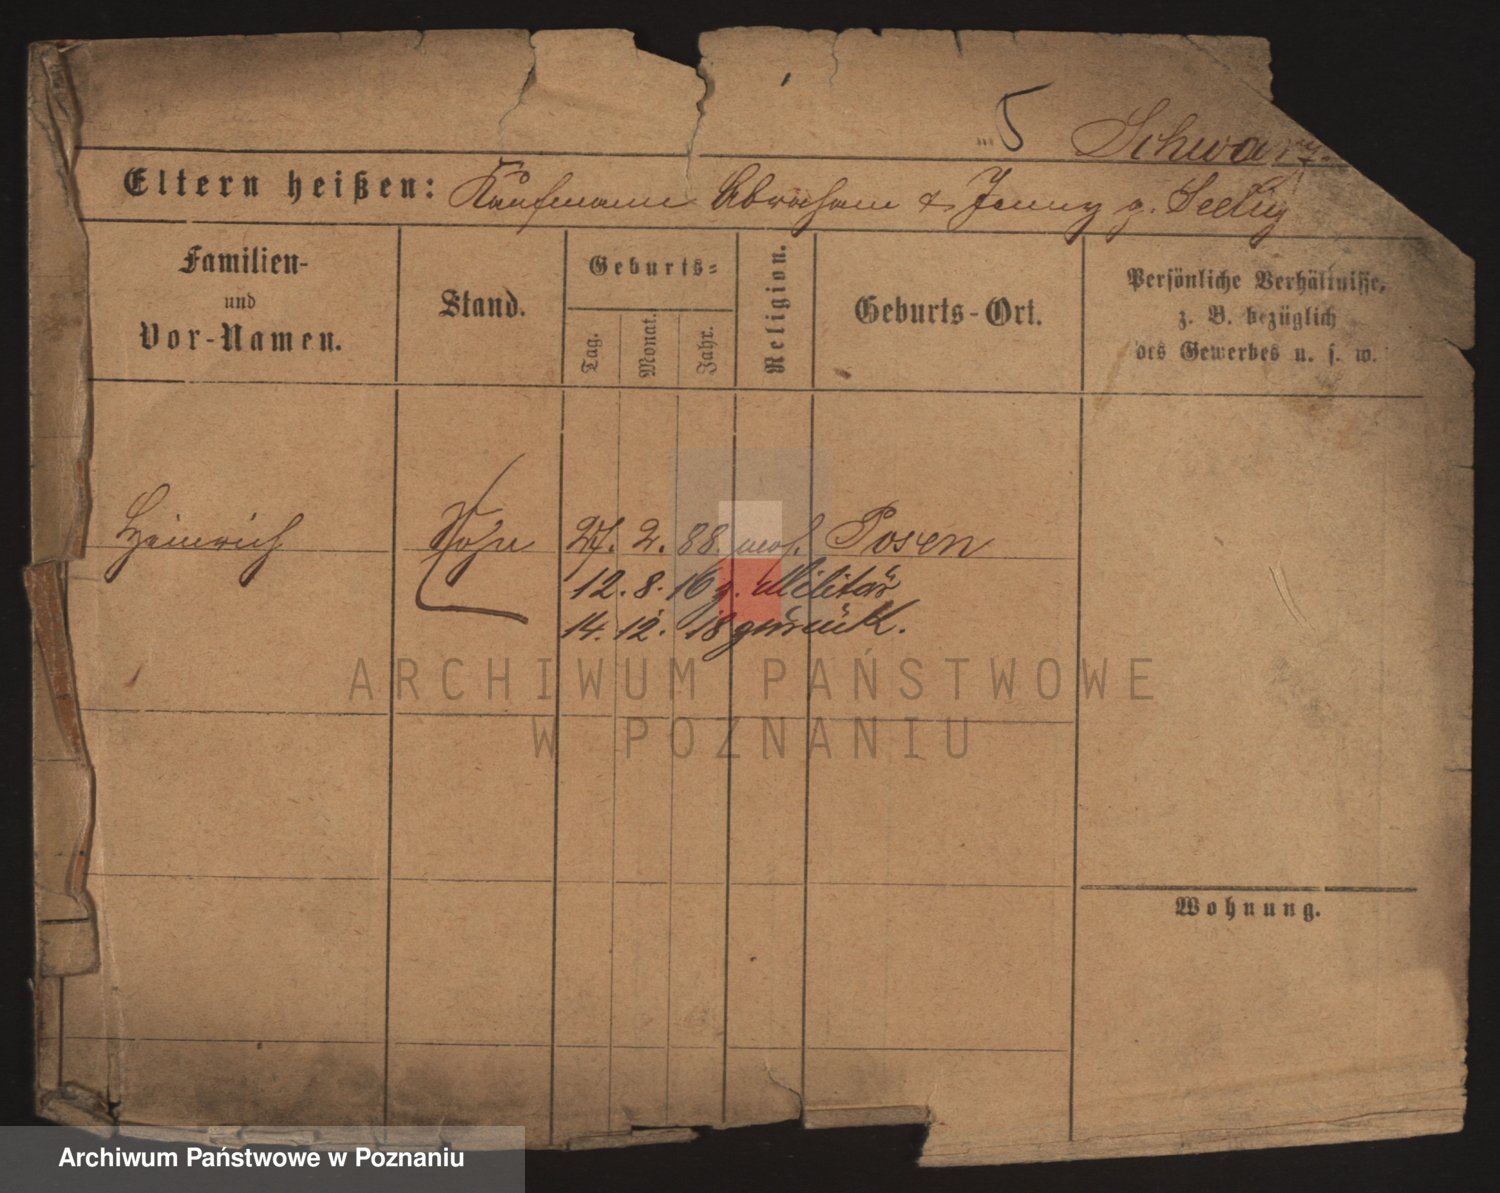 5 Schwarz.
Eltern heißen: Kaufmann Abraham & Jenny g. Seelig
Familien-
und
Vor-Namen.
Stand.
Geburts-
Tag.
Monat.
Jahr.
Religion.
Geburts-Ort.
Persönliche Verhältnisse,
z. B. bezüglich
des Gewerbes u. s. w.
Heinrich Sohn 27. 2. 88 mos. Posen
12. 8. 16 z. Militär
14. 12. 18 zurück.
ARCHIWUM PAŃSTWOWE
W POZNANIU
Wohnung.
Archiwum Państwowe w Poznaniu